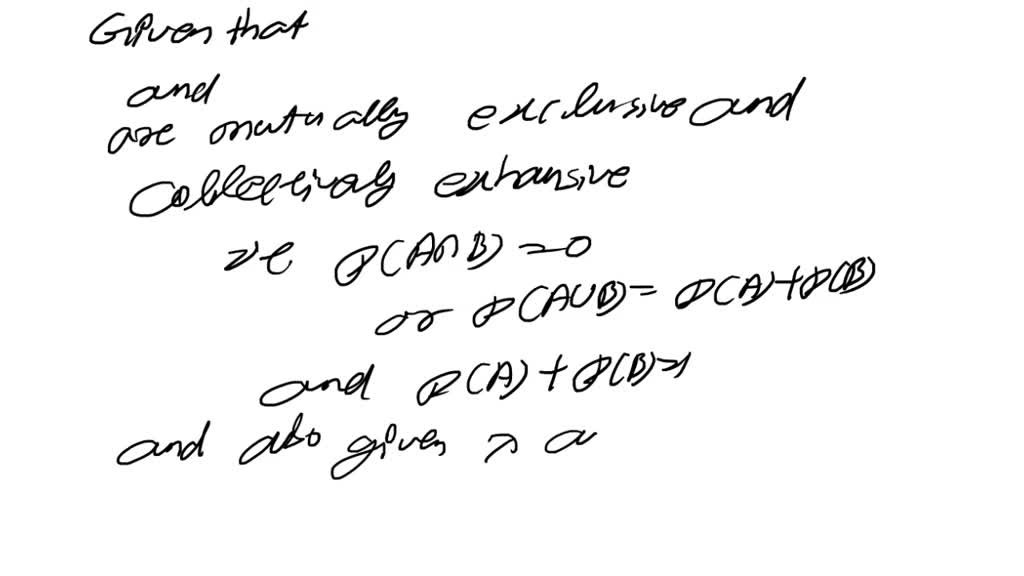 Given that
and
are mutually exclusive and
Collectively exhansive
ie P(A∩B) = 0
or P(A∪B) = P(A) + P(B)
and P(A) + P(B) = 1
and also given a